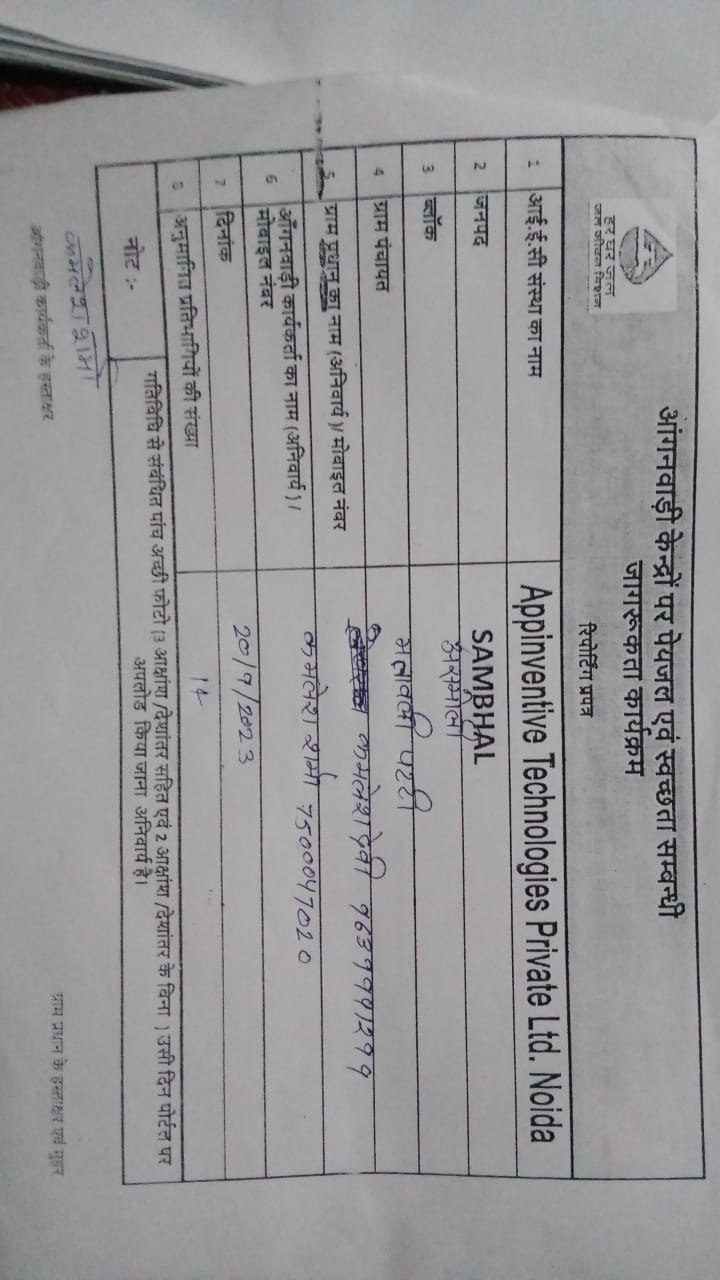 हर घर जल
जल जीवन मिशन
आंगनवाड़ी केन्द्रों पर पेयजल एवं स्वच्छता सम्बन्धी
जागरूकता कार्यक्रम
रिपोर्टिंग प्रपत्र
1 आई.ई.सी संस्था का नाम Appinventive Technologies Private Ltd. Noida
2 जनपद SAMBHAL
3 ब्लॉक असमोली
4 ग्राम पंचायत पट्टी
5 ग्राम प्रधान का नाम (अनिवार्य )/ मोबाइल नंबर कमलेश देवी
6 आँगनवाड़ी कार्यकर्ता का नाम (अनिवार्य ) / कमलेश शर्मा 7500047020
मोबाइल नंबर
7 दिनांक 20/9/2023
8 अनुमानित प्रतिभागियों की संख्या 14
नोट :- गतिविधि से संबंधित पांच अच्छी फोटो (3 आक्षांश /देशांतर सहित एवं 2 आक्षांश /देशांतर के बिना ) उसी दिन पोर्टल पर
अपलोड किया जाना अनिवार्य है।
कमलेश शर्मा
आंगनवाड़ी कार्यकर्ता के हस्ताक्षर
ग्राम प्रधान के हस्ताक्षर एवं मुहर